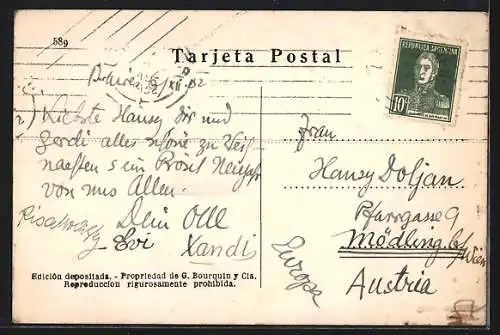 589
Tarjeta Postal
REPUBLICA ARGENTINA
10
Liebste Hansy Dir und
Gerdi alles schöne zu Weih
nachten u ein Prosit Neujahr
von uns Allen.
Dein Olle
Evi Xandi
Edición depositada. - Propriedad de G. Bourquin y Cia.
Reproduccion rigurosamente prohibida.
Frau
Hansy Doljan
Pfarrgasse 9
Mödling b/Wien
Austria
Europa